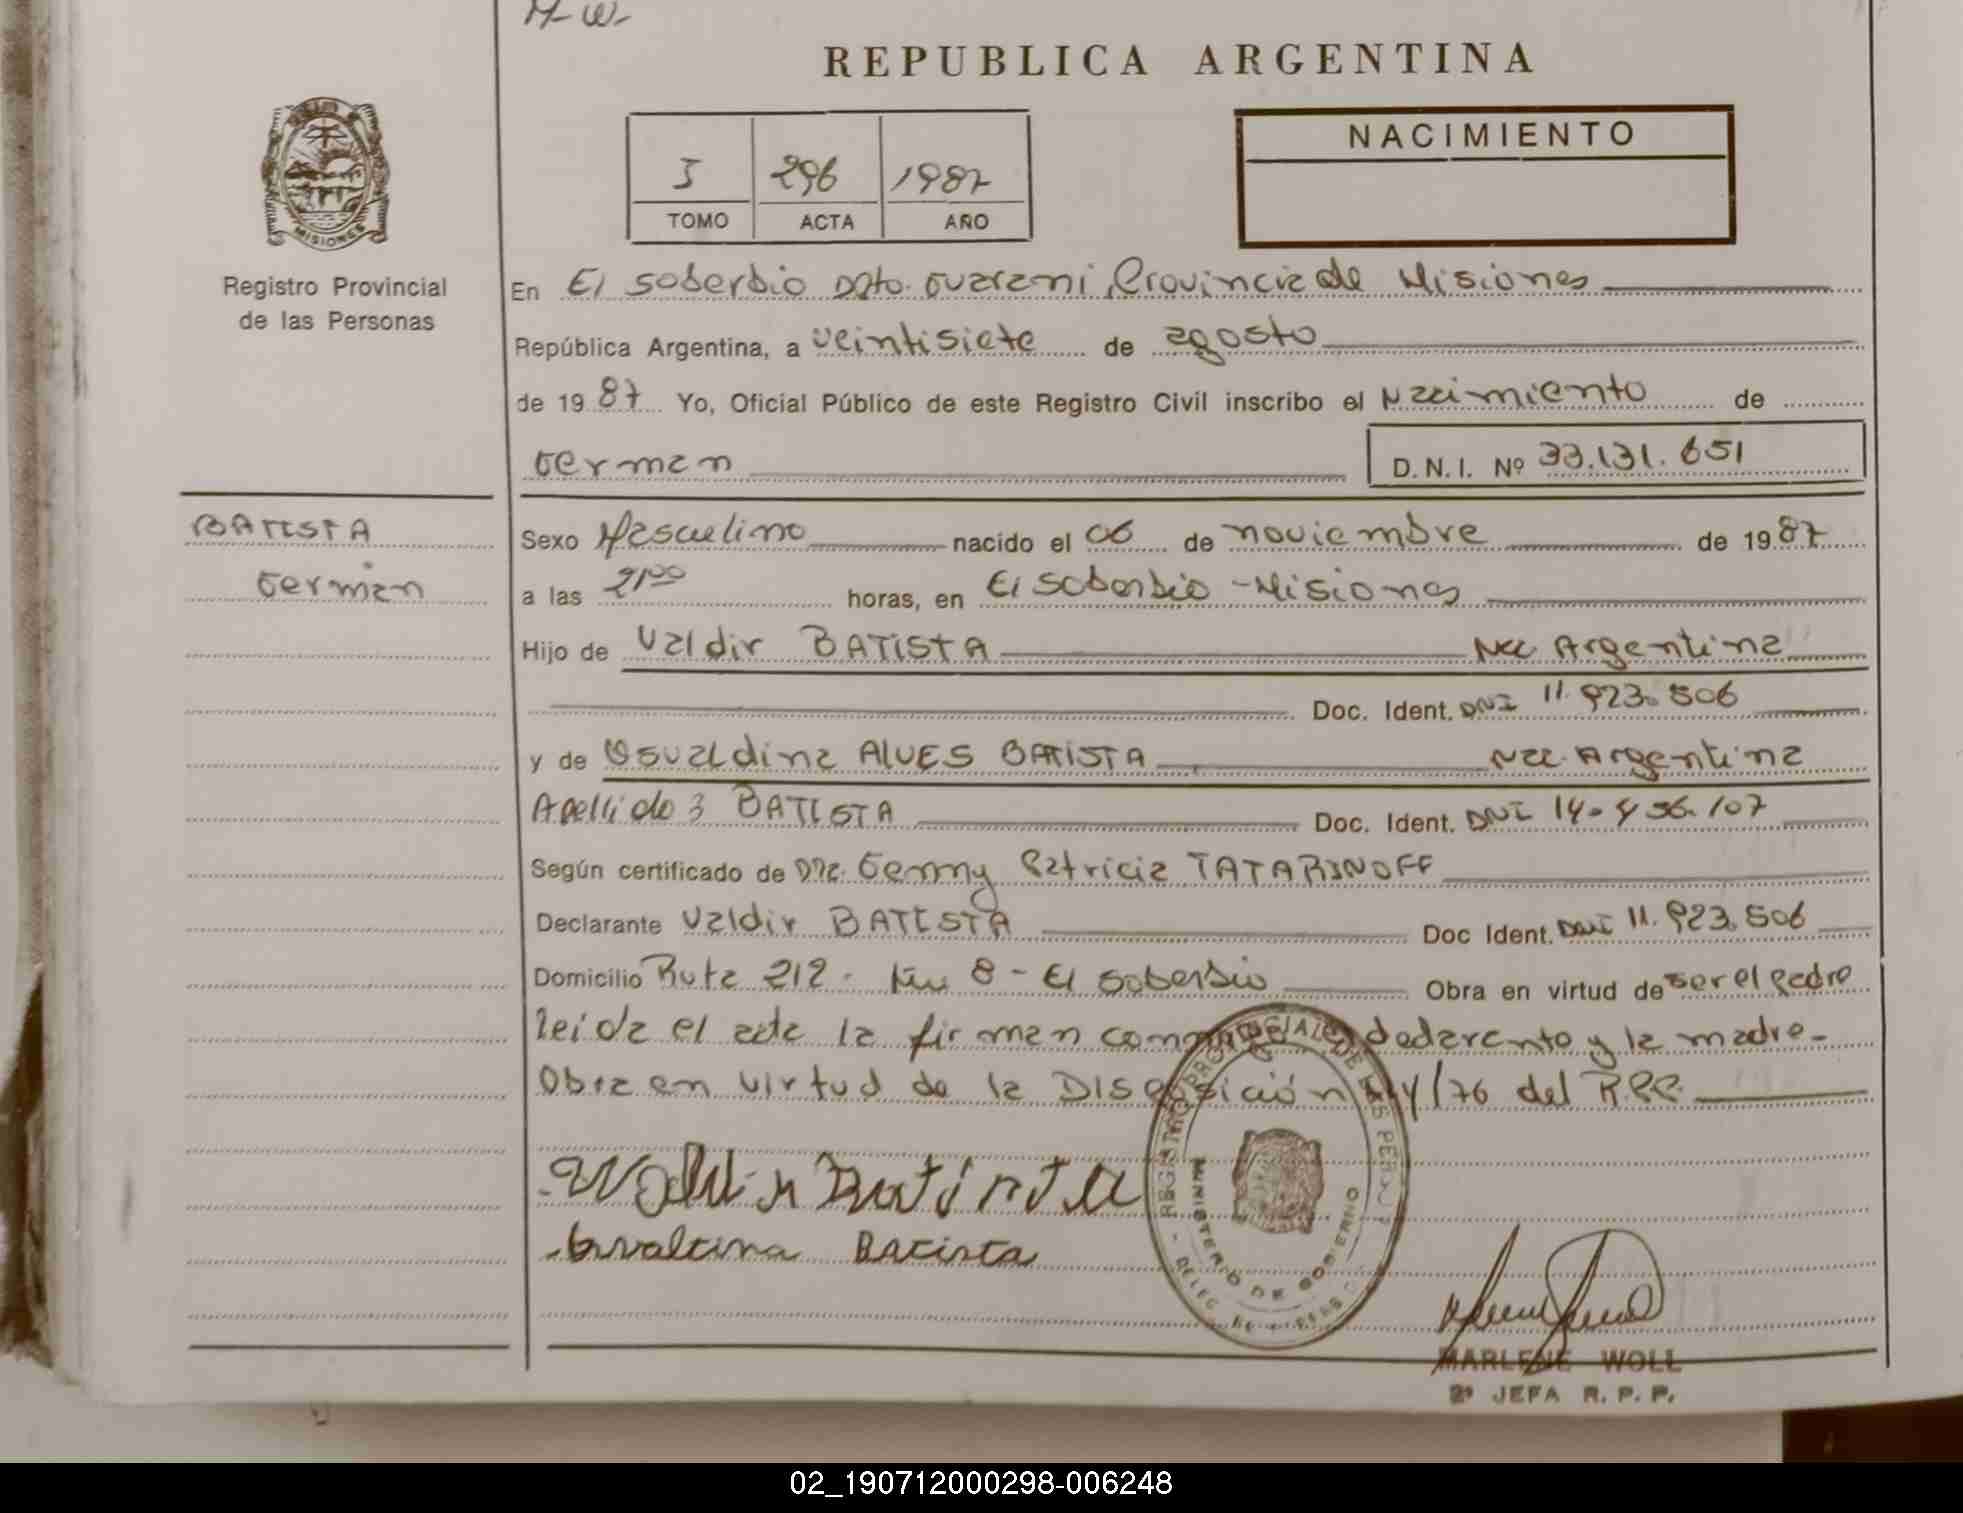 H-W-
REPUBLICA ARGENTINA
I 296 1987
TOMO ACTA AÑO
NACIMIENTO
MISIONES
Registro Provincial
de las Personas
En El Soberbio Dpto. Guarani, Provincia de Misiones
República Argentina, a veintisiete de agosto
de 1987 Yo, Oficial Público de este Registro Civil inscribo el Nacimiento de
German D.N.I. Nº 33.131.651
BATISTA
German
Sexo Masculino nacido el 06 de noviembre de 1987
a las 21⁰⁰ horas, en El Soberbio - Misiones
Hijo de Valdir BATISTA Nac. Argentina
Doc. Ident. DNI 11.923.506
y de Osvaldina ALVES BATISTA Nac. Argentina
Apellido 3 BATISTA Doc. Ident. DNI 14.456.107
Según certificado de Dra. Genny Patricia TATARINOFF
Declarante Valdir BATISTA Doc Ident. DNI 11.923.506
Domicilio Ruta 212 - Km 8 - El Soberbio Obra en virtud de ser el padre
leida el acta la firman conmigo el declarante y la madre.-
Obra en virtud de la Disposición /76 del R.P.P.
Batista
Batista
REGISTRO PROVINCIAL DE LAS PERS
MINISTERIO DE GOBIERNO
MARLENE WOLL
2ª JEFA R. P. P.
02_190712000298-006248